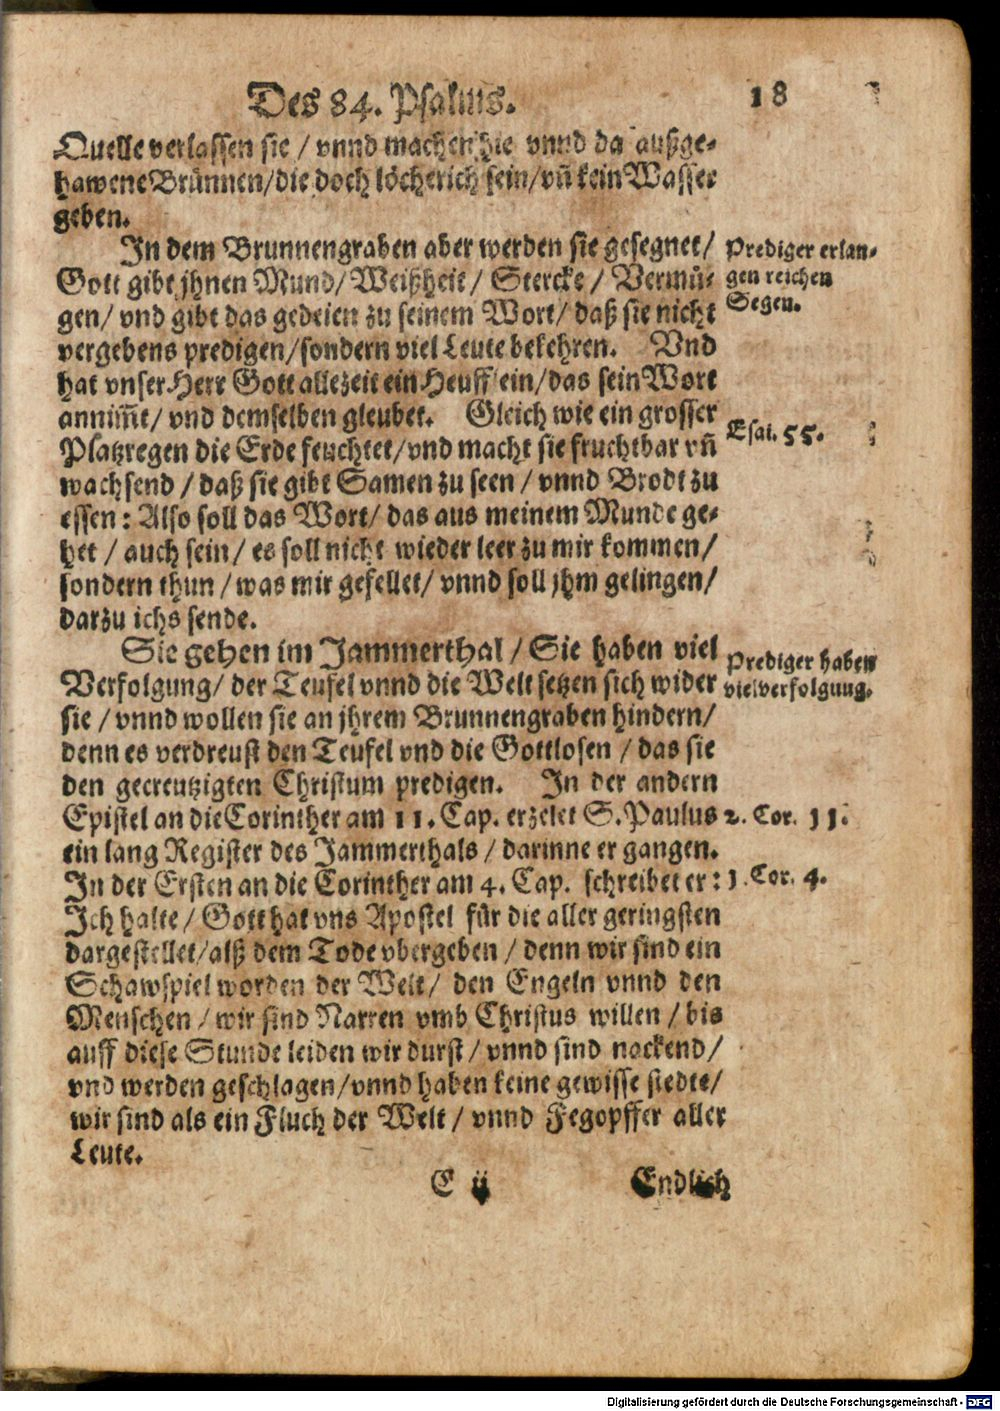 Des 84. Psalms. 18
Quelle verlassen sie / vnnd machen hie vnnd da außge-
hawene Brünnen/die doch löcherich sein/vn̄ kein Wasser
geben.
In dem Brunnengraben aber werden sie gesegnet/
Gott gibt jhnen Mund/ Weißheit / Stercke / Vermü-
gen/ vnd gibt das gedeien zu seinem Wort/ daß sie nicht
vergebens predigen/sondern viel Leute bekehren. Vnd
hat vnser Herr Gott allezeit ein Heufflein/das sein Wort
annim̄t/ vnd demselben gleubet. Gleich wie ein grosser
Platzregen die Erde feuchtet/vnd macht sie fruchtbar vn̄
wachsend / daß sie gibt Samen zu seen / vnnd Brodt zu
essen : Also soll das Wort/ das aus meinem Munde ge-
het / auch sein/ es soll nicht wieder leer zu mir kommen/
sondern thun / was mir gefellet/ vnnd soll jhm gelingen/
darzu ichs sende.
Sie gehen im Jammerthal / Sie haben viel
Verfolgung/ der Teufel vnnd die Welt setzen sich wider
sie / vnnd wollen sie an jhrem Brunnengraben hindern/
denn es verdreust den Teufel vnd die Gottlosen / das sie
den gecreutzigten Christum predigen. In der andern
Epistel an die Corinther am 11. Cap. erzelet S. Paulus
ein lang Register des Jammerthals / darinne er gangen.
In der Ersten an die Corinther am 4. Cap. schreibet er :
Ich halte/ Gott hat vns Apostel für die aller geringsten
dargestellet/alß dem Tode vbergeben / denn wir sind ein
Schawspiel worden der Welt/ den Engeln vnnd den
Menschen / wir sind Narren vmb Christus willen / bis
auff diese Stunde leiden wir durst / vnnd sind nackend/
vnd werden geschlagen/vnnd haben keine gewisse stedte/
wir sind als ein Fluch der Welt / vnnd Fegopffer aller
Leute.
E ij Endlich
Prediger erlan-
gen reichen
Segen.
Esai. 55.
Prediger haben
viel verfolgung.
2. Cor. 11.
1. Cor. 4.
Digitalisierung gefördert durch die Deutsche Forschungsgemeinschaft - DFG